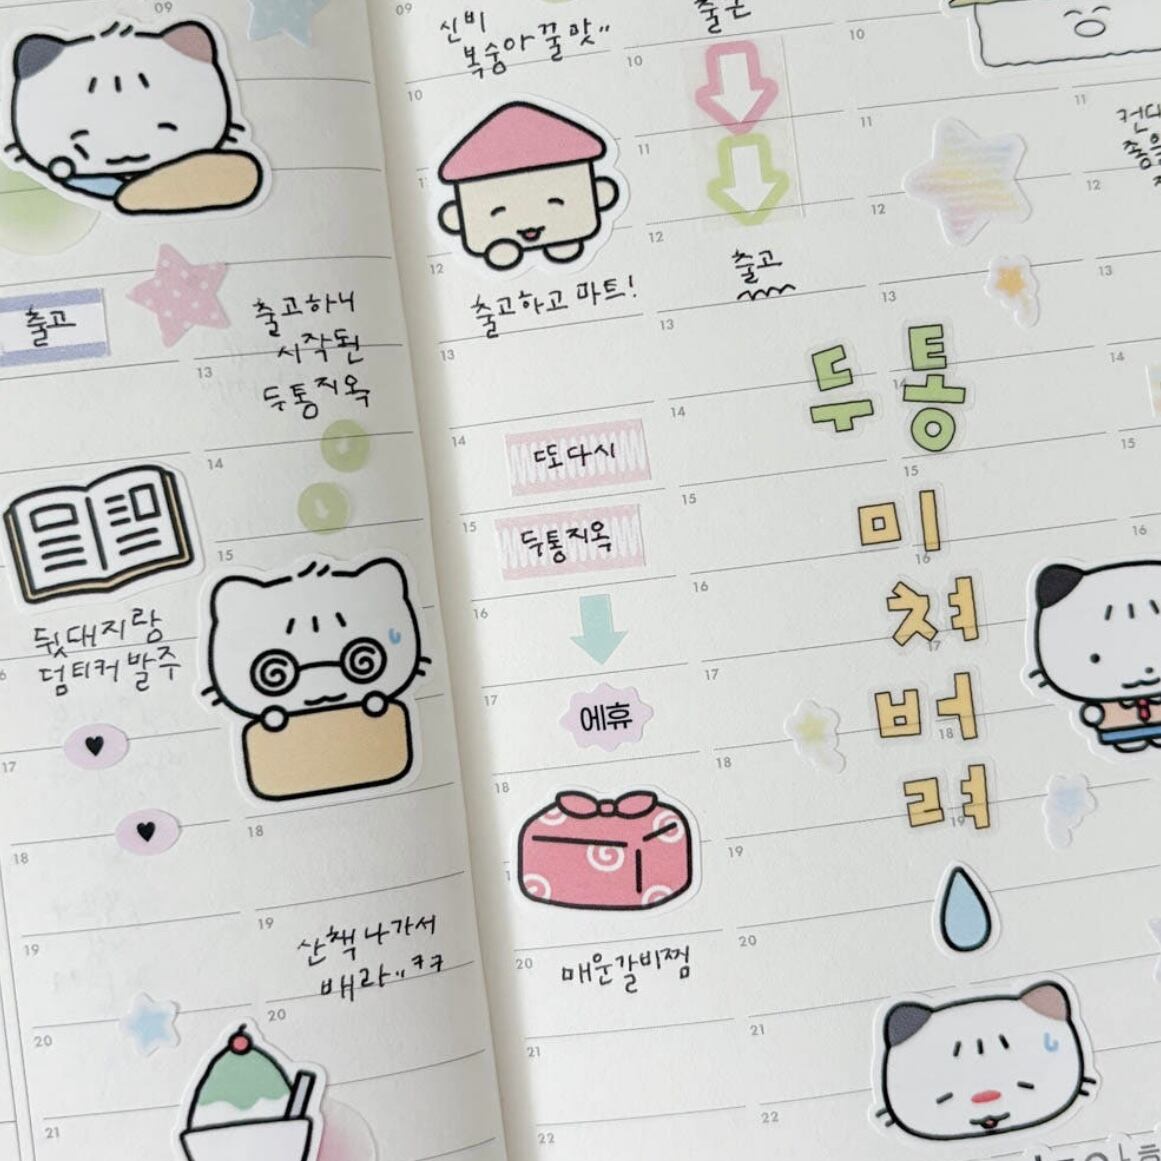 09
출고
출고하니
시작된
두통지옥
13
14
15
뒷대지랑
덤티커 발주
17
18
18
19
19
산책 나가서
배라..ㅋㅋ
20
20
21
09
신비
복숭아 꿀맛..
10
12
출고하고 마트!
13
14
또다시
15
두통지옥
16
17
에휴
18
20
매운갈비찜
21
22
10
11
12
출고
13
14
15
16
17
18
19
20
21
22
10
11
12
13
두통
14
15
미
16
쳐
17
버
18
려
19
11
12
13
14
15
16